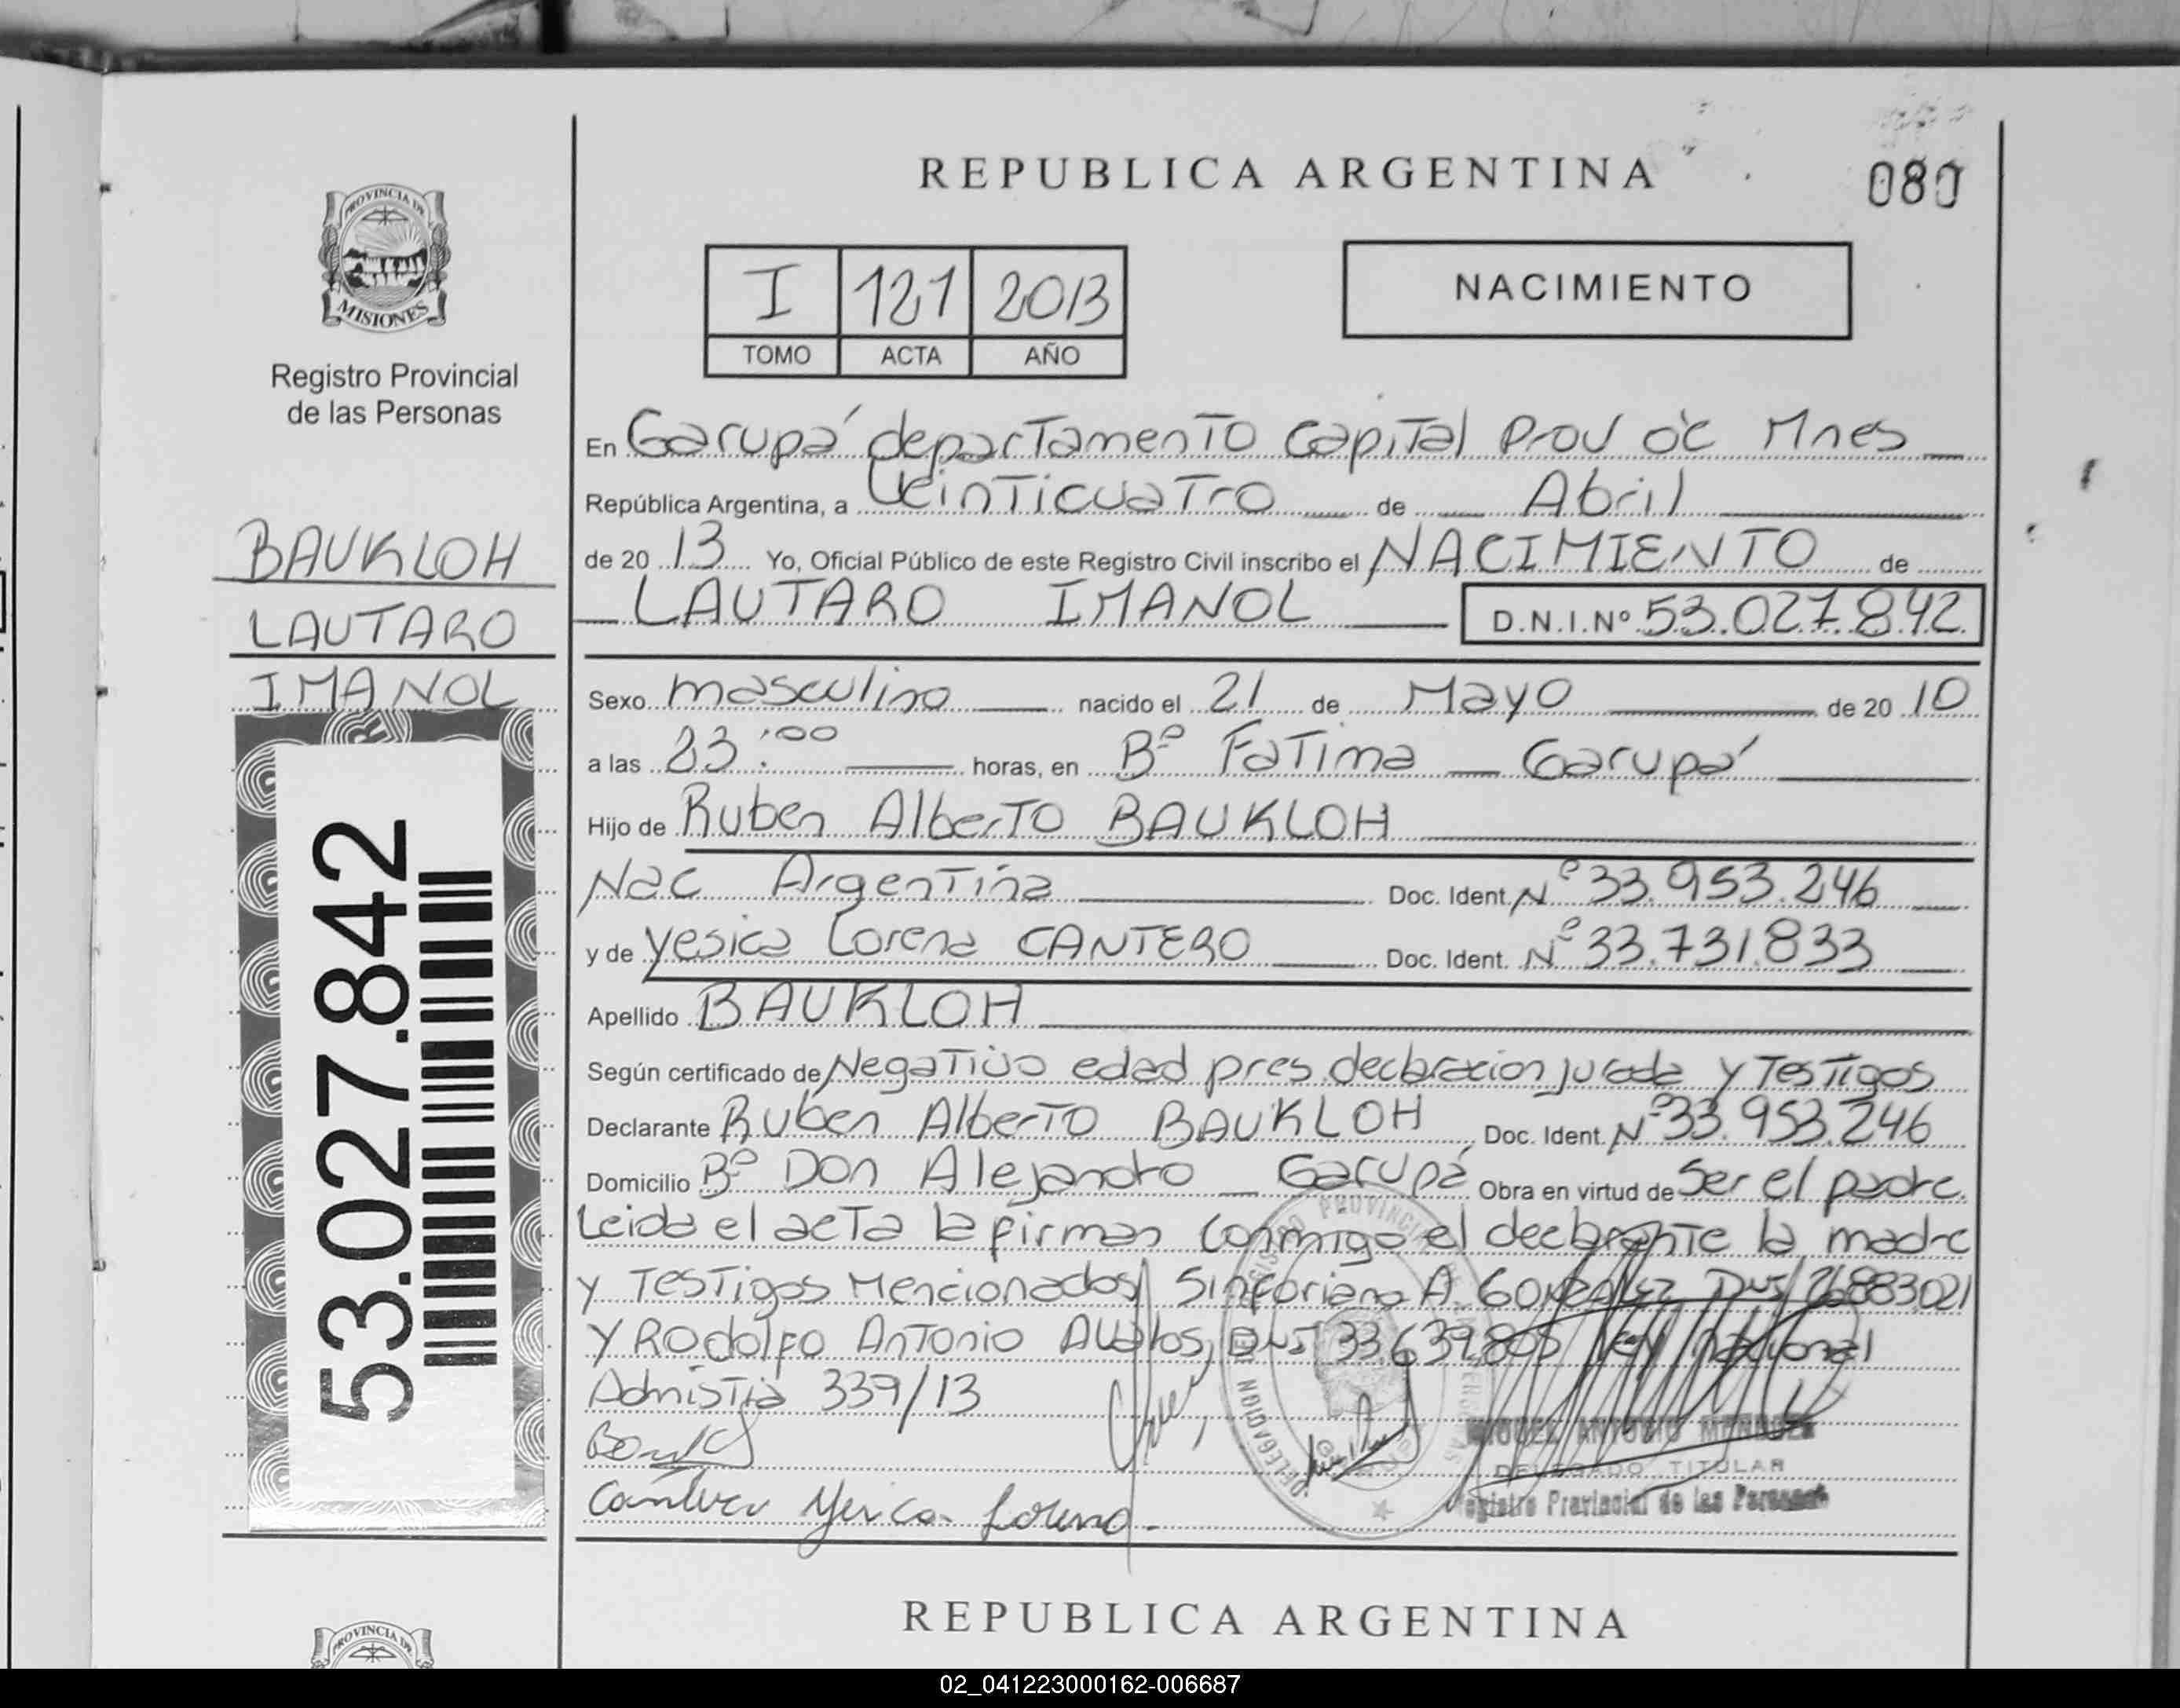 REPUBLICA ARGENTINA
080
PROVINCIA DE
MISIONES
Registro Provincial
de las Personas
I 121 2013
TOMO ACTA AÑO
NACIMIENTO
BAUKLOH
LAUTARO
IMANOL
53.027.842
En Garupá departamento Capital Prov de Mnes
República Argentina, a Veinticuatro de Abril
de 2013 Yo, Oficial Público de este Registro Civil inscribo el NACIMIENTO de
LAUTARO IMANOL D.N.I.Nº 53.027.842
Sexo masculino nacido el 21 de Mayo de 2010
a las 23:00 horas, en Bº Fatima Garupá
Hijo de Ruben Alberto BAUKLOH
Nac Argentina Doc. Ident. Nº 33.953.246
y de Yesica Lorena CANTERO Doc. Ident. Nº 33.731.833
Apellido BAUKLOH
Según certificado de Negativo edad pres. declaracion jurada y Testigos
Declarante Ruben Alberto BAUKLOH Doc. Ident. Nº 33.953.246
Domicilio Bº Don Alejandro Garupá Obra en virtud de Ser el padre.
Leida el acta la firman conmigo el declarante la madre
y Testigos Mencionados Sinforiano A. Gonzalez DNI 26883021
y Rodolfo Antonio Avalos, DNI 33.639.805 Ley nacional
Admistia 339/13
Cantero Yesica Lorena.
MIGUEL ANTONIO MENDOZA
DELEGADO TITULAR
Registro Provincial de las Personas
REPUBLICA ARGENTINA
PROVINCIA DE
02_041223000162-006687